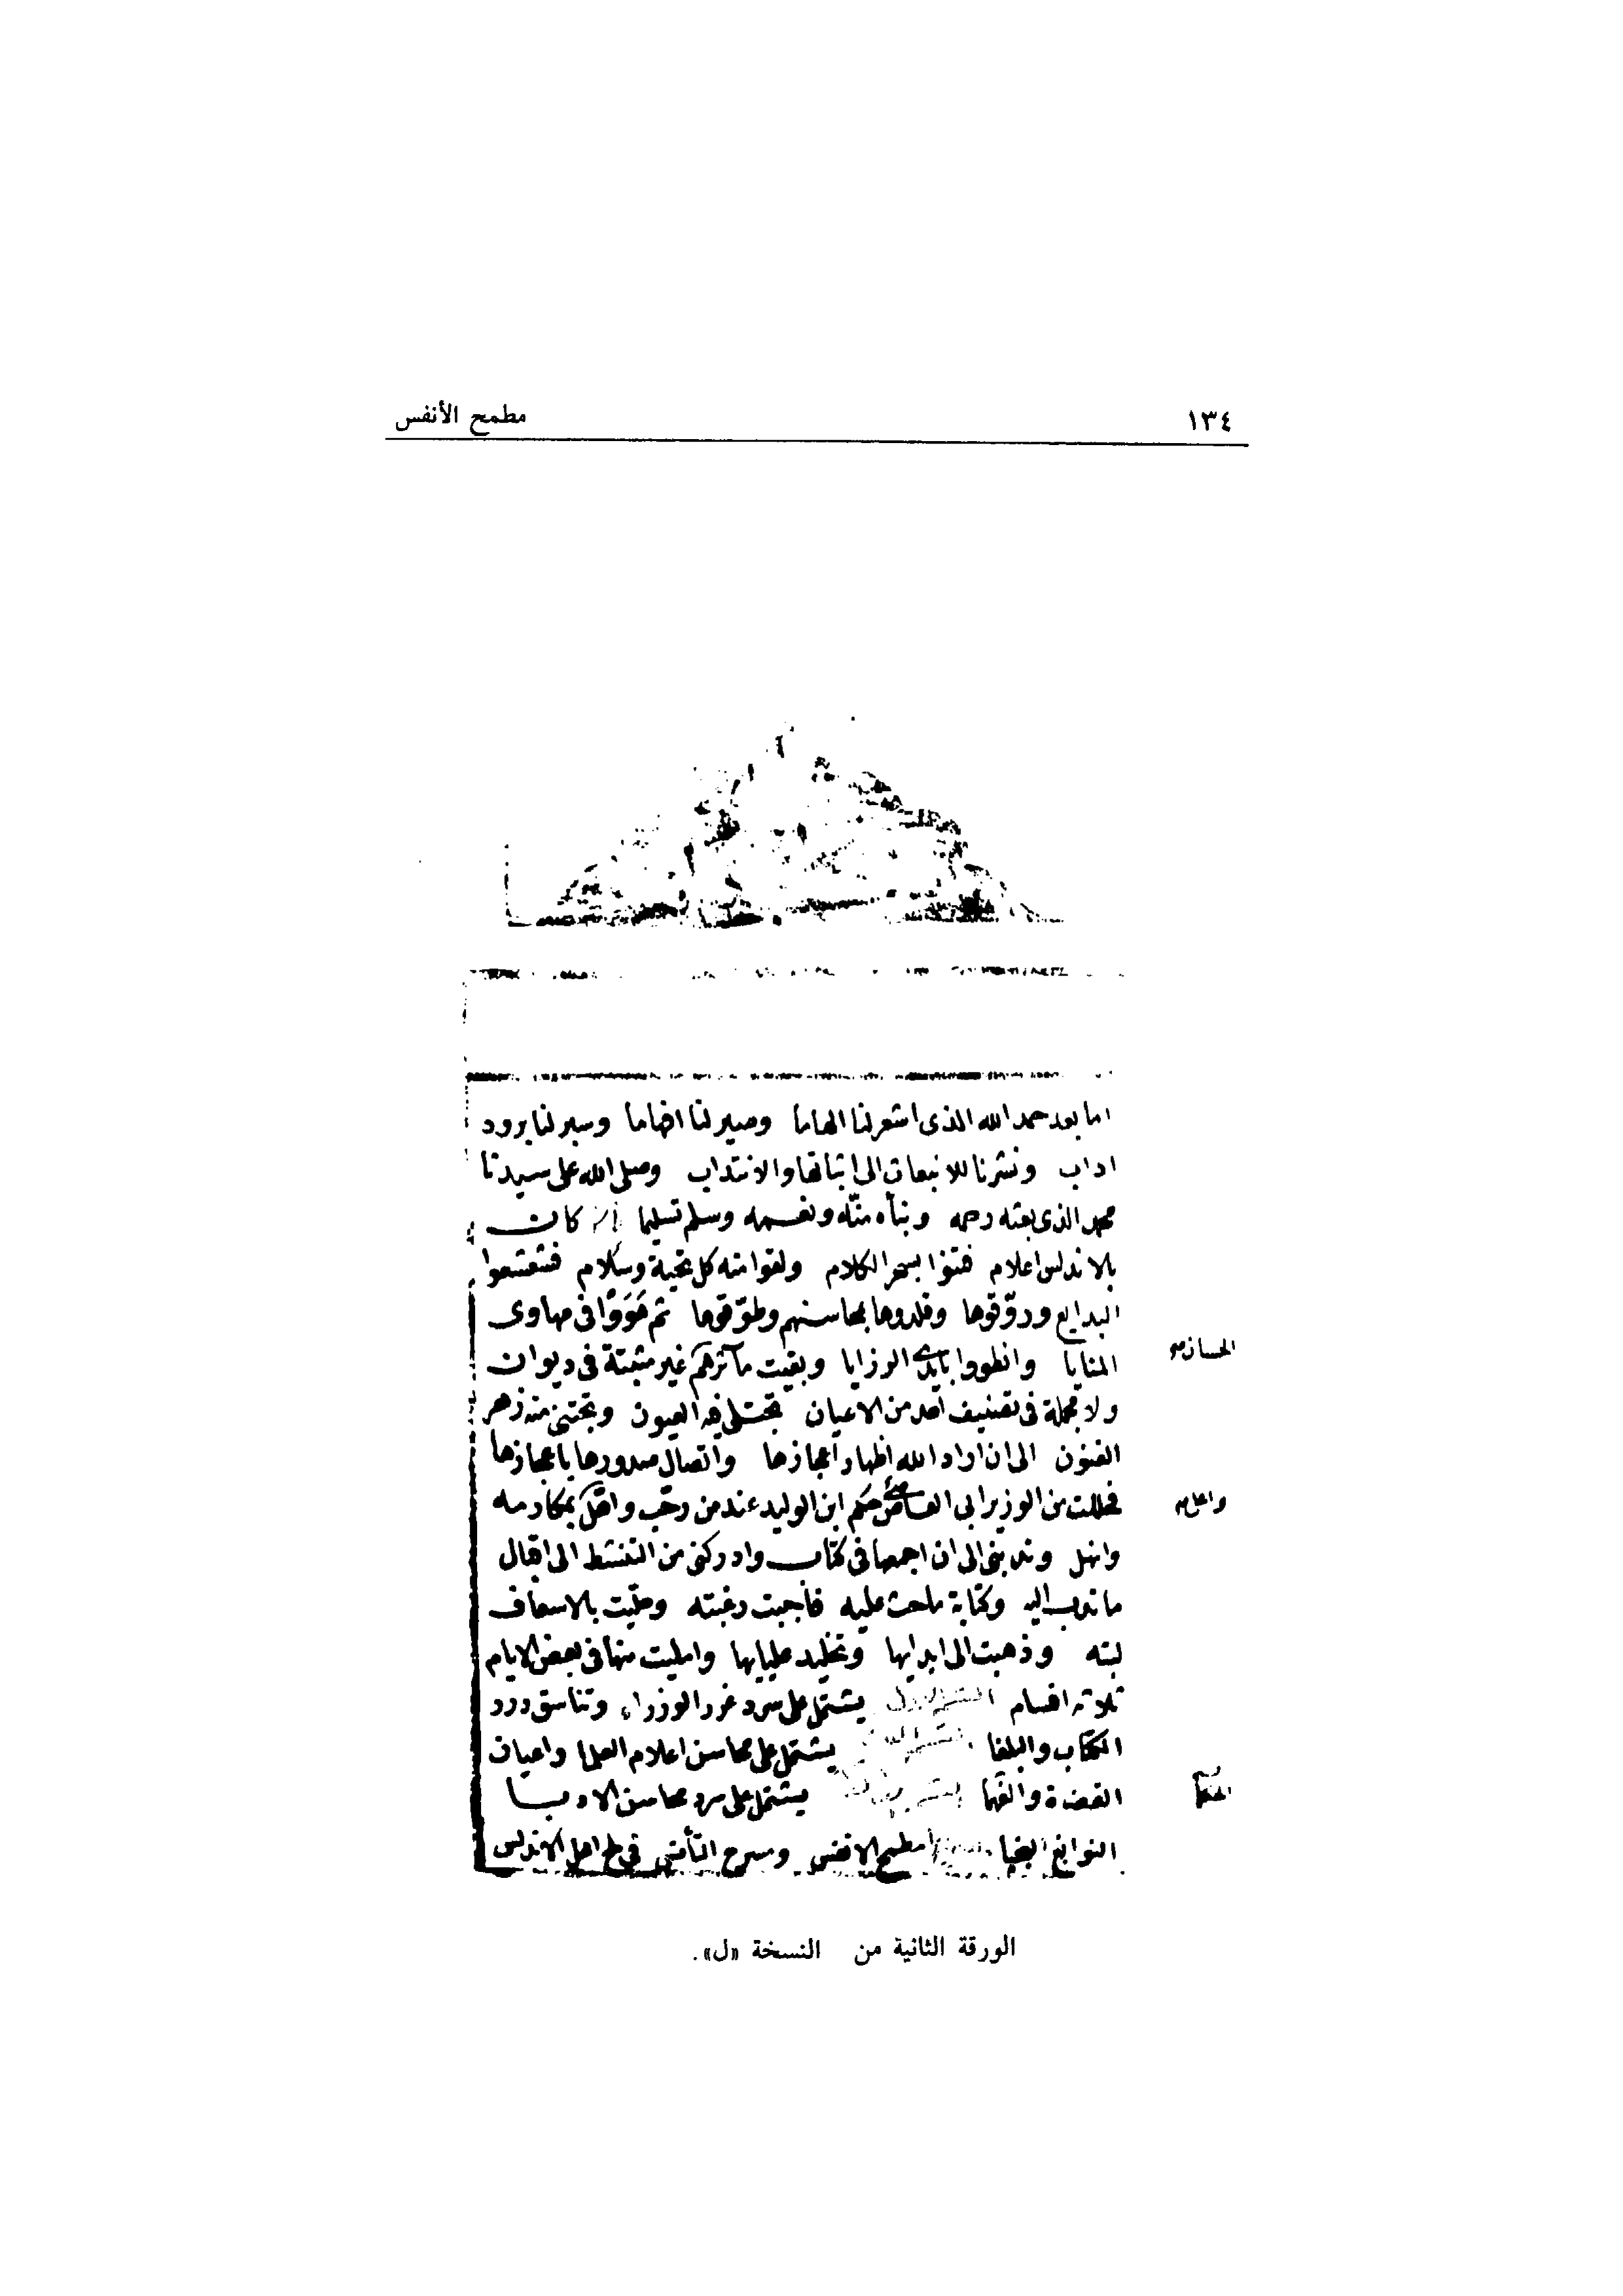 ١٣٤
مطمح الأنفس
اما بعد حمد الله الذى اشعرلنا الهاما وصيرلنا افهاما وسيرلنا برود
اداب ونشرنا للانبعاث الى اثباتها والانتداب وصلى الله على سيدنا
محمد الذى بعثه رحمه ونبأه منّه ونعمه وسلم تسليما كان
بالاندلس اعلام فتنوا بسحر الكلام ولقوا منه كل تحية وسلام فشعشعوا
البدايع وروّقوها وقلدوها بمحاسنهم وطوّقوها ثم هَوَوْا فى مهاوى
المنايا وانطووا بايدى الرزايا وبقيت مآثرهم غير مثبتة فى ديوان
ولا مجملة فى تصنيف احد من الاعيان تجتلى فيه العيون وتجتنى منه زهر
الفنون الى ان اراد الله اظهار اعجازها واتصال صدورها باعجازها
فحللت من الوزير ابى العاصى حكم ابن الوليد عند من رحّب واهّل بمكارمه
وانهل وندبنى الى ان اجمعها فى كتاب وادركنى من التنشط الى اقبال
ما ندب اليه وكتابة ما حث عليه فأجبت رغبته وحليت بالاسعاف
لبته وذهبت الى ابدايها وتخليد عليايها وامليت منها فى بعض الايام
ثلاثه اقسام القسم الاول يشتمل على سرد غرر الوزراء وتناسق درر
الكتاب والبلغا يشتمل على محاسن اعلام العلما واعيان
القضاة والفهما يشتمل على سرد محاسن الادبا
النوابغ النجبا مطمح الانفس ومسرح التأنس فى ملح اهل الاندلس
الورقة الثانية من النسخة «ل».